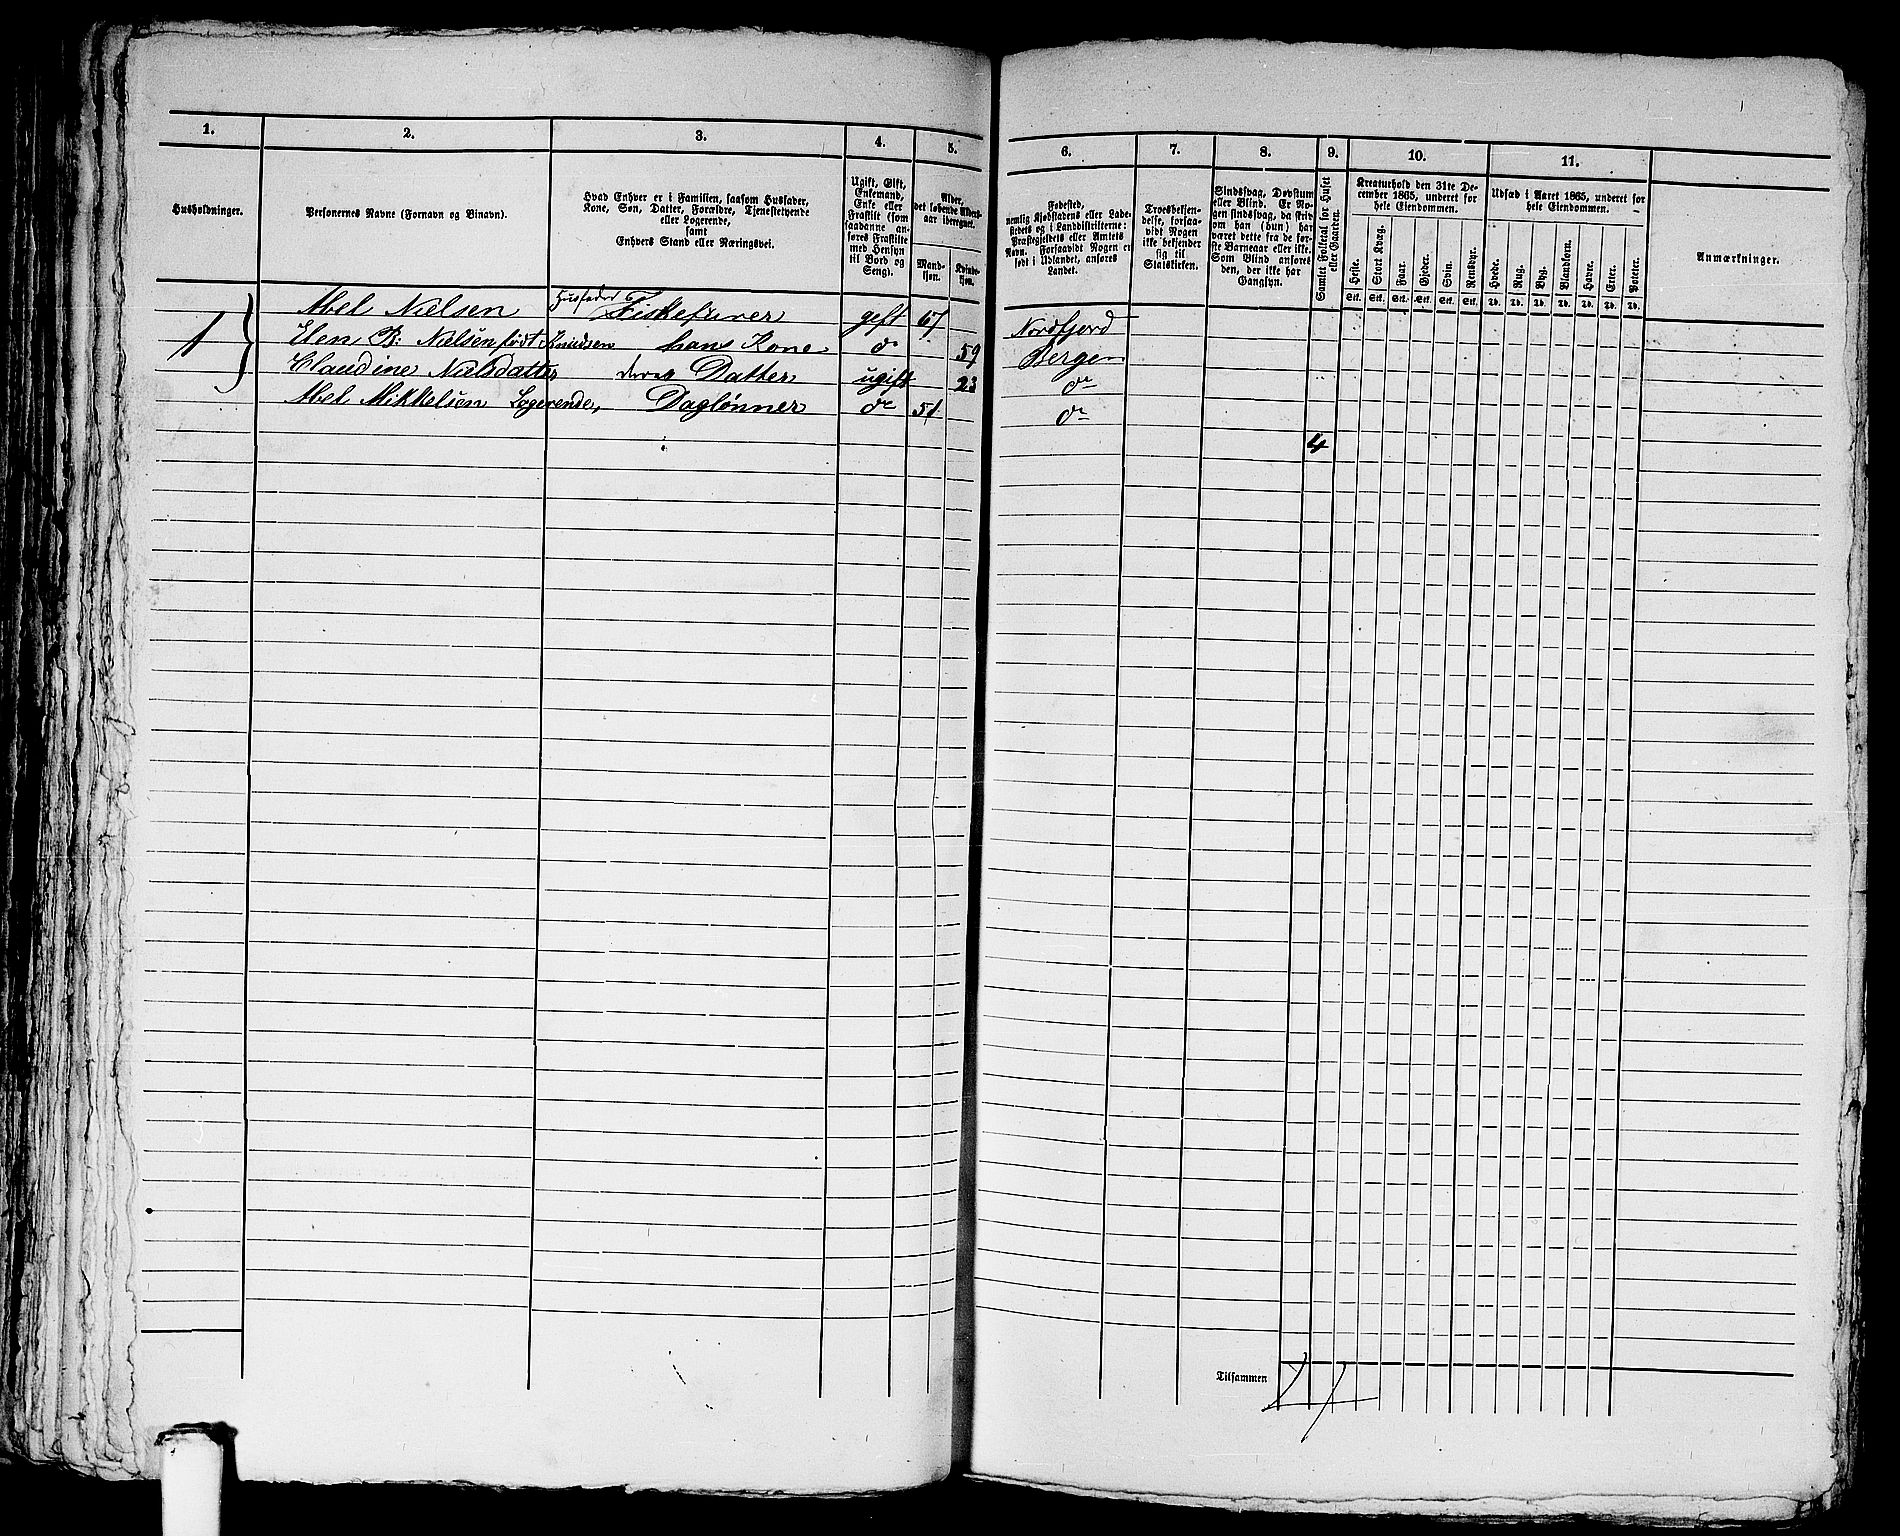 1. 2. 3. 4. 5. 6. 7. 8. 9. 10. 11.
Husholdninger.
Personernes Navne (Fornavn og Binavn).
Hvad Enhver er i Familien, saasom Husfader,
Kone, Søn, Datter, Forældre, Tjenestetyende
eller Logerende,
samt
Enhvers Stand eller Næringsvei.
Ugift, Gift,
Enkemand,
Enke eller
Fraskilt (som
saadanne an-
føres Fraskilte
med Hensyn
til Bord og
Seng).
Alder,
det løbende Alders-
aar iberegnet.
Mand-
kjøn.
Kvinde-
kjøn.
Fødested,
nemlig Kjøbstadens eller Lade-
stedets og i Landdistrikterne:
Præstegjeldets eller Amtets
Navn. Forsaavidt Nogen er
født i Udlandet, anføres
Landet.
Troesbekjen-
delse, forsaa-
vidt Nogen
ikke bekjender
sig til
Statskirken.
Sindssvag, Døvstum
eller Blind. Er No-
gen sindssvag, da skriv
om han (hun) har
været dette fra de før-
ste Barneaar eller ikke.
Som Blind anføres
den, der ikke har
Gangsyn.
Samlet Folketal for Huset
eller Gaarden.
Kreaturhold den 31te De-
cember 1865, underet for
hele Eiendommen.
Heste. Stort Kvæg. Faar. Gjeder. Svin. Rensdyr.
Stk. Stk. Stk. Stk. Stk. Stk.
Udsæd i Aaret 1865, underet for
hele Eiendommen.
Hvede. Rug. Byg. Blandkorn. Havre. Erter. Poteter.
Td. Td. Td. Td. Td. Td. Td.
Anmærkninger.
1 Abel Nielsen Husfader Fiskefører gift 67 Nordfjord
Elen B: Nielsen født Knudsen hans Kone do 59 Bergen
Claudine Nielsdatter deres Datter ugift 23 do
Abel Mikkelsen Logerende, Daglønner do 51 do
4
Tilsammen